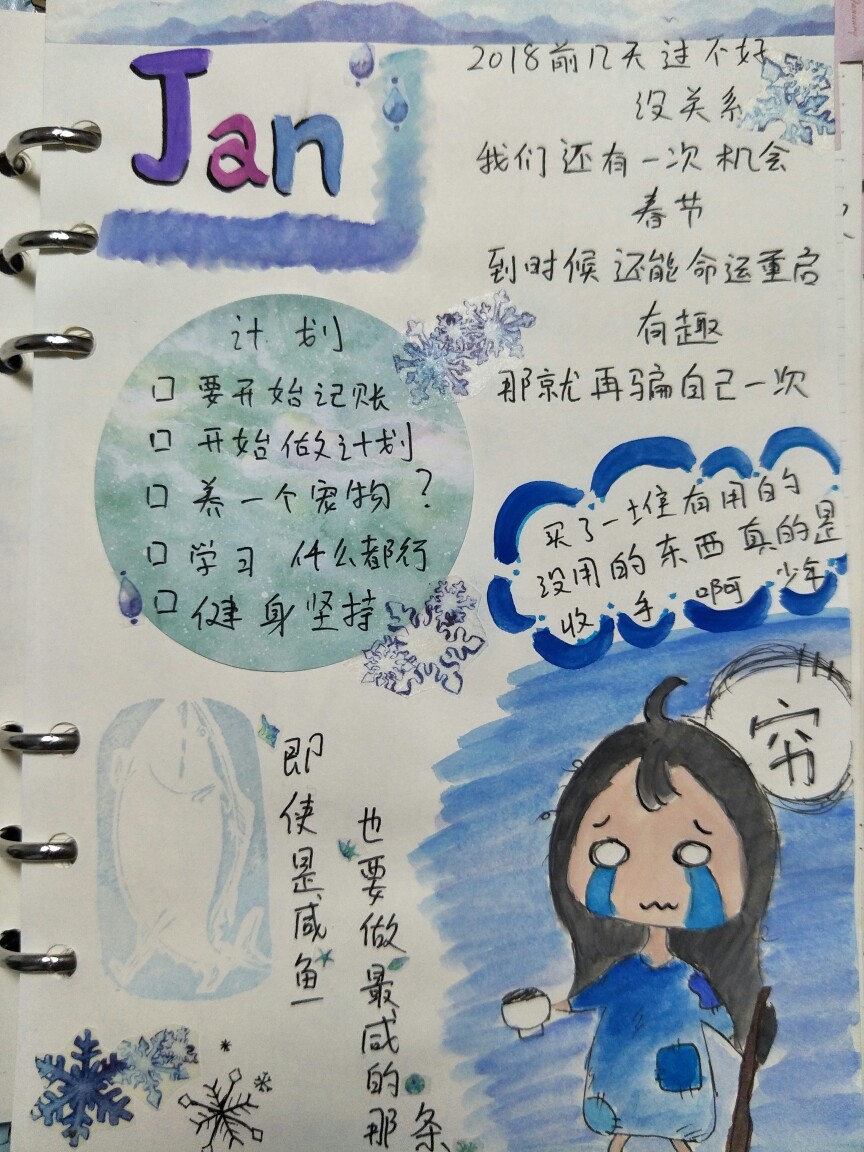 Jan
2018前几天过不好
没关系
我们还有一次机会
春节
到时候还能命运重启
有趣
那就再骗自己一次
计划
□ 要开始记账
□ 开始做计划
□ 养一个宠物？
□ 学习 什么都行
□ 健身坚持
买了一堆有用的
没用的东西真的是
收手啊少年
穷
即使是咸鱼
也要做最咸的那条